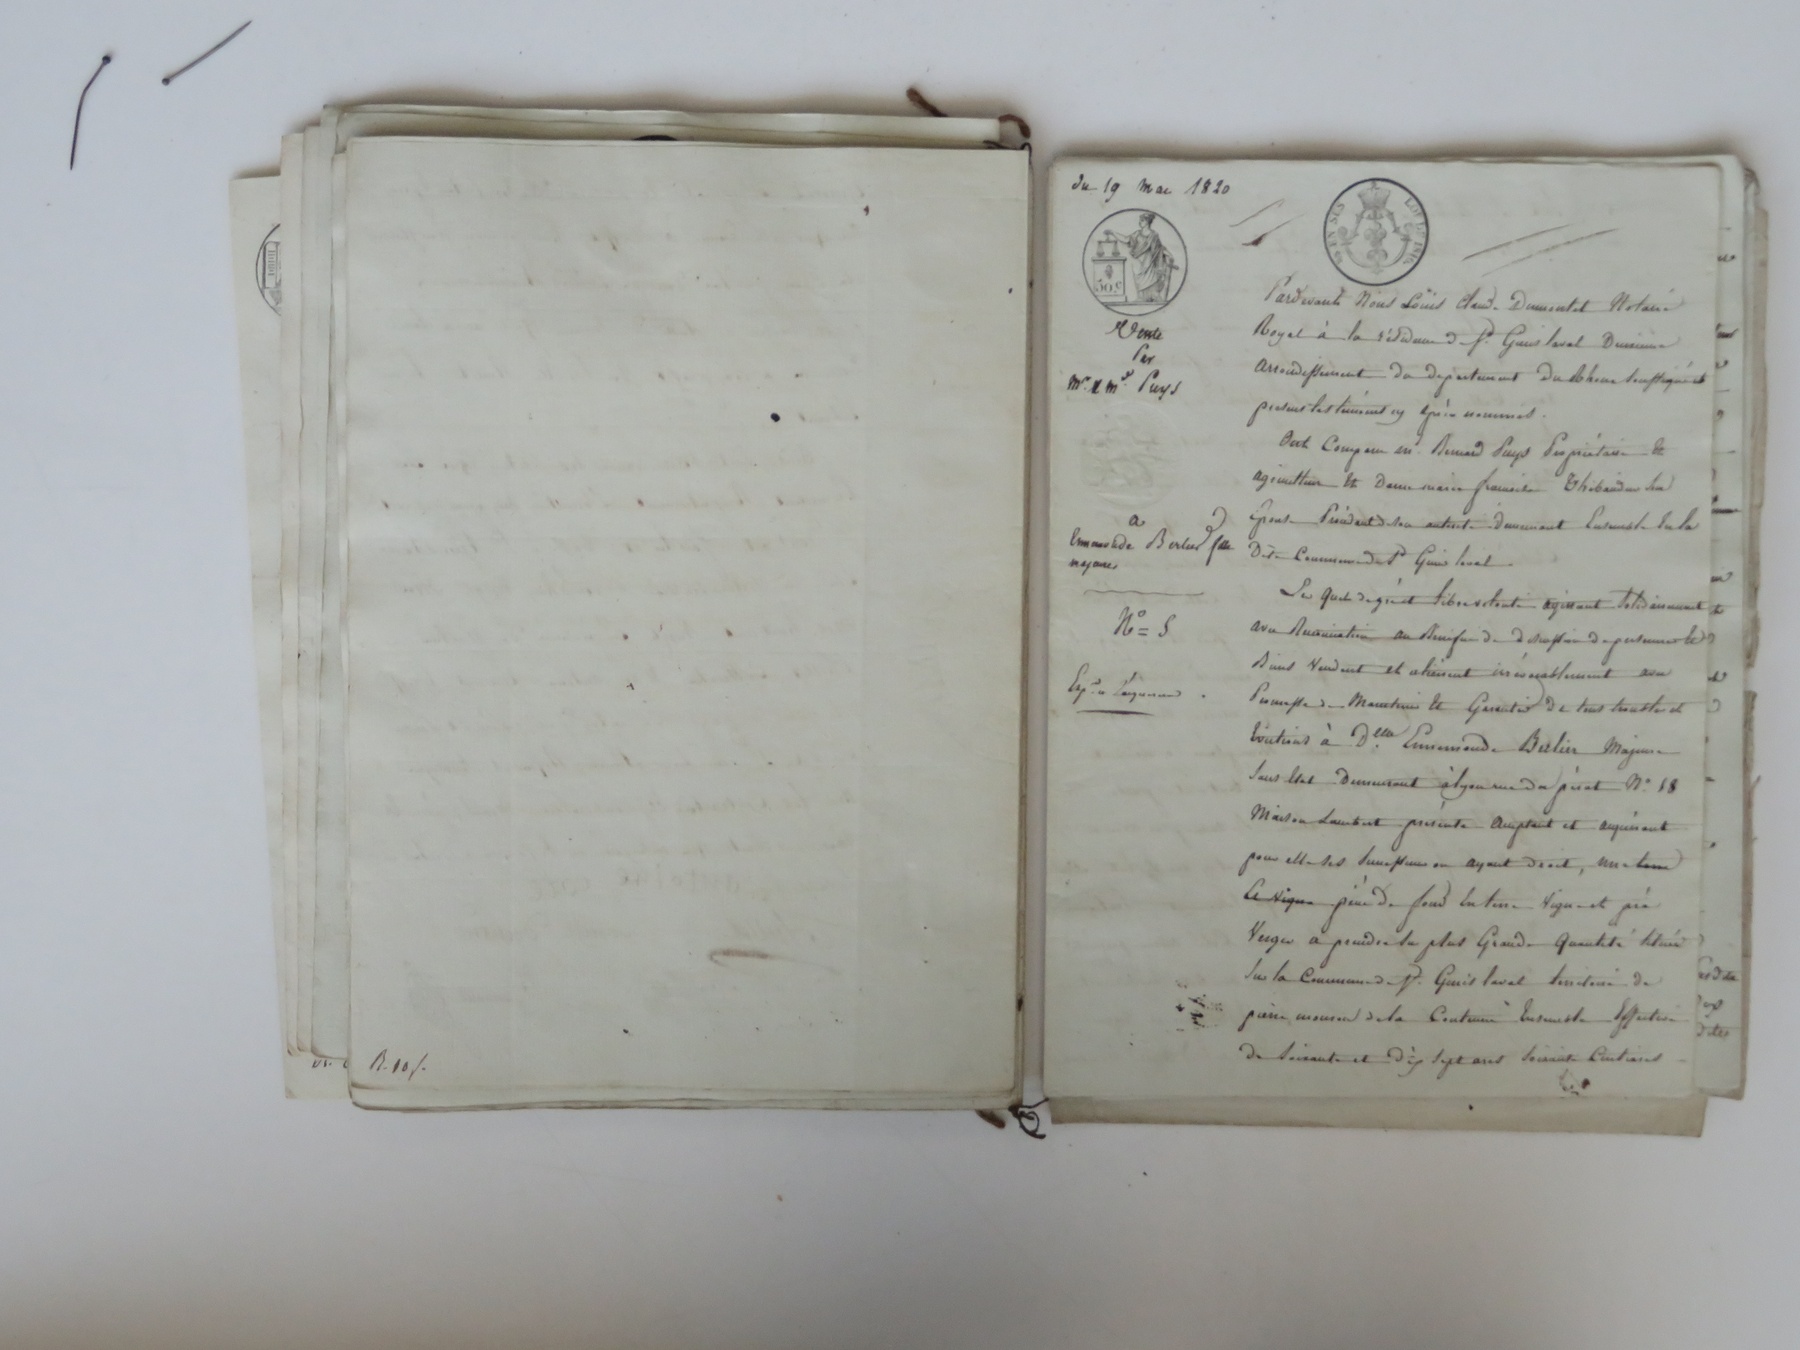 R. 10 f.
du 19 mai 1820
30.c
Vente
Par
mr. & md. Puys
a
Ennemonde Berlier fille
majeure
N° = 5
Pardevant Nous Louis Claude Dumortet Notaire
Royal à la résidence de St. Genis laval Deuxieme
arrondissement du departement du Rhone soussigné et
presens les témoins cy après nommés.
Ont Comparu mr. Bernard Puys Propriétaire et
agriculteur et Dame marie françoise Thibaudier son
Epouse Procédant de son autorité demeurant Ensemble En la
Dite Commune de St Genis laval.
Les quels de gré et libre volonté agissant solidairement
avec Renonciation au Benefice de discussion de personne et
Biens Vendent et aliénent irrévocablement avec
Promesse de Maintenir et Garantir de tous troubles et
Evictions à Delle Ennemonde Berlier Majeure
sans Etat Demeurant à lyon rue du pérat N° 18
Maison Lambert présente acceptant et acquérant
pour elle ses successeurs ou ayant droit, une terre
Et vigne pièce de fond En terre Vigne et pré
Verger a prendre la plus Grande Quantité située
Sur la Commune de St. Genis laval territoire de
pierre de la Contenue Ensemble Effective
de Soixante et dix sept ares soixante Centiares